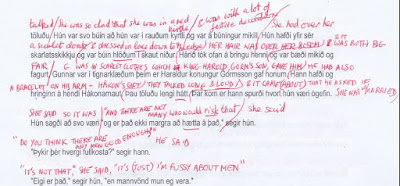 talked / she was so clad that she was in a red kirtle / & was with a lot of festive decoration / She had over her
töluðu. Hún var svo búin að hún var í rauðum kyrtli og var á búningur mikill. Hún hafði yfir sér
a scarlet cloak & dressed in lace down to HER HAIR WAS OVER HER & LONG & IT WAS BOTH BIG-
skarlatsskikkju og var búin hlöðum í skaut niður. Hárið tók ofan á bringu henni og var bæði mikið og
FAIR G WAS IN SCARLET CLOTHES WHICH KING HAROLD, GORM'S SON, GAVE HIM HE HAD ALSO
fagurt. Gunnar var í tignarklæðum þeim er Haraldur konungur Gormsson gaf honum. Hann hafði og
A BRACELET ON HIS ARM - HÁKON'S GIFT. THEY TALKED LONG & LOUD & IT CAME ABOUT THAT HE ASKED IF SHE WAS MARRIED
hringinn á hendi Hákonarnaut. Þau töluðu lengi hátt. Þar kom er hann spurði hvort hún væri ógefin.
SHE SAID SO IT WAS "AND THERE ARE NOT many who would risk that", she said
Hún sagði að svo væri "og er það ekki margra að hætta á það," segir hún.
"DO YOU THINK THERE ARE ANY MEN GOOD ENOUGH" HE SAID
"Þykir þér hvergi fullkosta?" segir hann.
"IT'S NOT THAT," SHE SAID, "IT'S (JUST) I'M FUSSY ABOUT MEN"
"Eigi er það," segir hún, "en mannvönd mun eg vera."